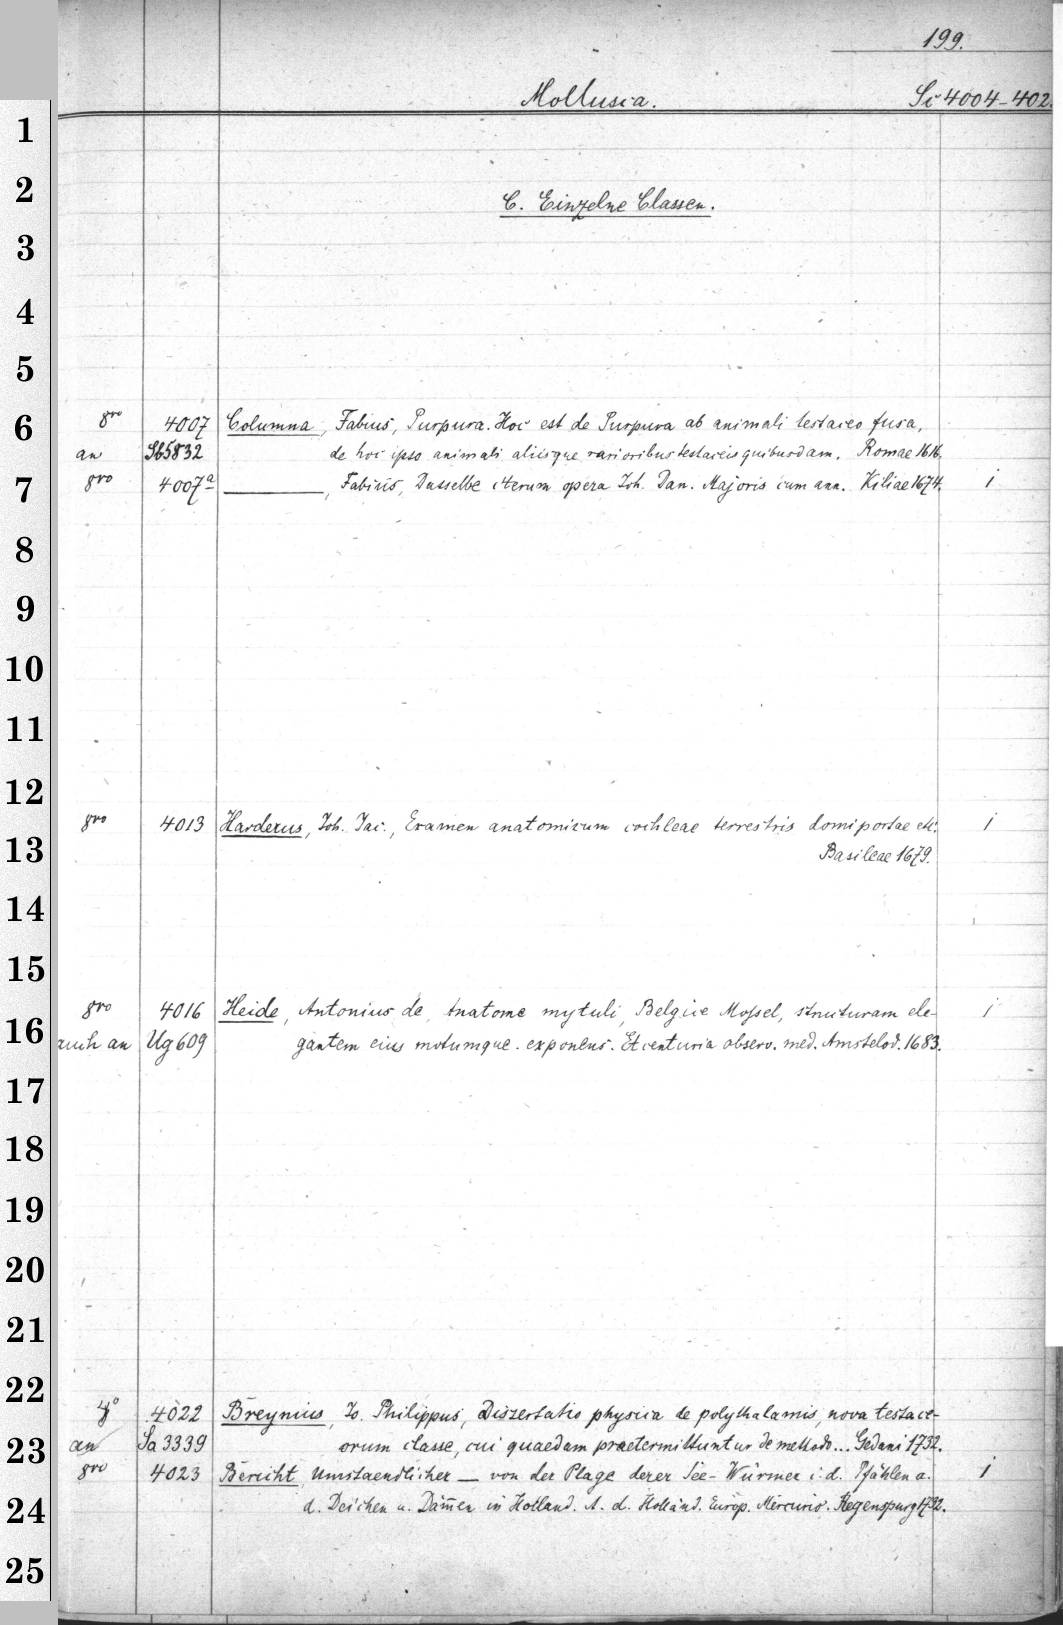 199.
Mollusca. Si 4004-402
C. Einzelne Classen.
8vo 4007 Columna, Fabius, Purpura. Hoc est de Purpura ab animali testaceo fusa,
an Sb5832 de hoc ipso animali aliisque rarioribus testaceis quibusdam. Romae 1616.
8vo 4007a ———, Fabius, Dasselbe iterum opera Joh. Dan. Majoris cum ann. Kiliae 1674. i
8vo 4013 Harderus, Joh. Jac., Examen anatomicum cochleae terrestris domiportae etc. i
Basileae 1679.
8vo 4016 Heide, Antonius de, Anatome mytuli, Belgice Mossel, structuram ele- i
auch an Ug609 gantem eius motumque exponens. Et centuria observ. med. Amstelod. 1683.
4° 4022 Breynius, Jo. Philippus, Dissertatio physica de polythalamis, nova testace-
an Sa 3339 orum classe, cui quaedam praetermittuntur de methodo... Gedani 1732.
8vo 4023 Bericht Umstaendlicher — von der Plage derer See-Würmer i. d. Pfählen a. i
d. Deichen u. Däm̄en in Holland. A. d. Holländ. Europ. Mercurio. Regenspurg 1732.
1
2
3
4
5
6
7
8
9
10
11
12
13
14
15
16
17
18
19
20
21
22
23
24
25